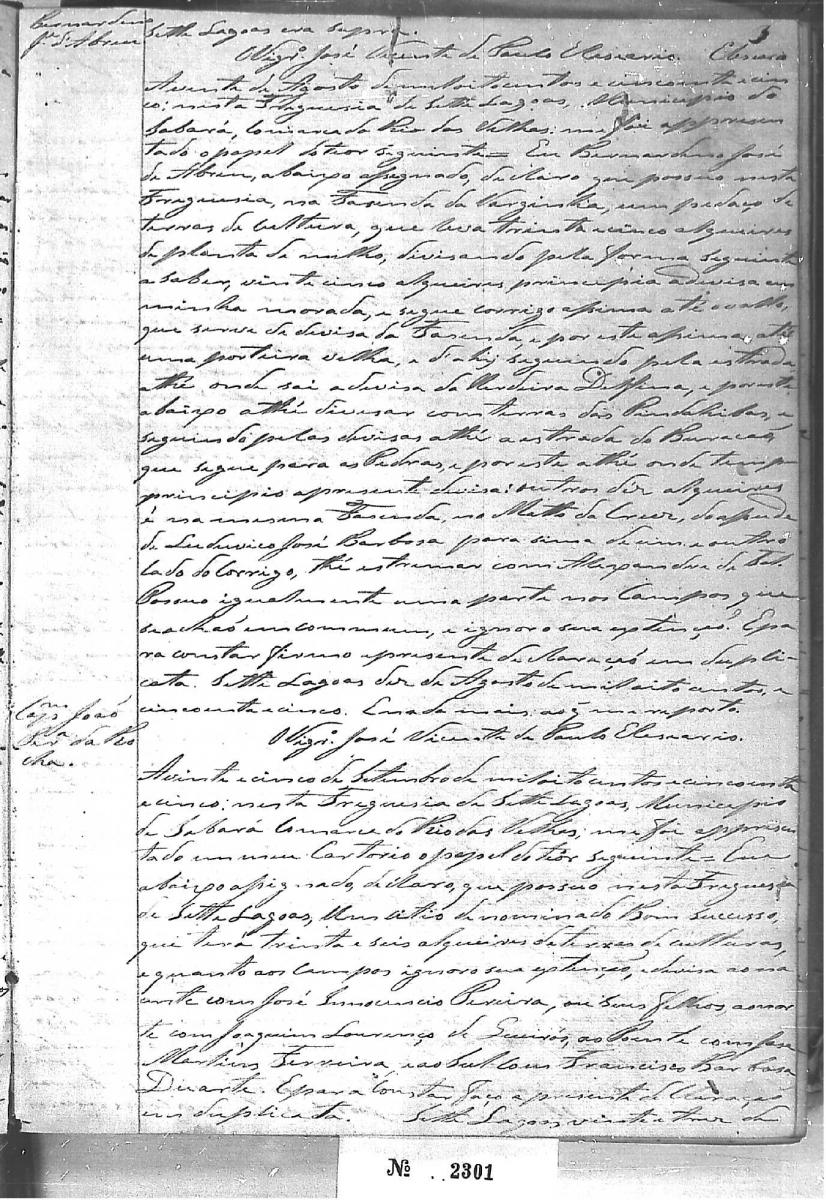 3
Bernardino
Je. d'Abreu
Sette Lagoas era supra.
O Vigro. José Vicente de Paulo Elesiario.
A vinte de Agosto de mil oito centos e cincoenta e cin
co: nesta Freguesia de Sette Lagoas, Municipio do
Sabará, Comarca do Rio das Velhas: me foi appresen
tado o papel do teor seguinte = Eu Bernardino José
de Abreu, abaixo assignado, declaro que possuo nesta
Freguesia, na Fazenda da Varginha, um pedaço de
terras de Cultura, que leva trinta e cinco alqueires
de planta de milho, divisando pela forma seguinte
a saber, vinte cinco alqueires principia a devisa em
minha morada, e segue corrigo assima até o vallo,
que serve de devisa da Fazenda, e por este assima até
uma porteira velha, e d'ahi seguindo pela estrada
athé onde sai a devisa da Deffina, e por esta
abaixo athé divisar com terras das Pindahibas, e
seguindo pelas devisas athé a estrada do Buracão
que segue para as Pedras, e por este athé onde teve
principio a presente devisa: outros dez alqueires
é na mesma Fazenda, no Matto da Cruz,
de Luduvico José Barbosa para sima de um e outro
lado do Corrigo, thé estremar com Alexandre de
Possuo igualmente uma parte nos Campos, que
se achão em commum, e ignoro sua extenção. E pa
ra constar firmo a presente declaração em dupli-
cata. Sette Lagoas dez de Agosto de mil oito centos, e
cincoenta e cinco. E nada mais: ao q. me reporto.
O Vigro. José Vicente de Paulo Elesiario.
Capm. João
Per.a da Ro
cha.
A vinte e cinco de Setembro de mil oito centos e cincoenta
e cinco: nesta Freguesia de Sette Lagoas, Municipio
de Sabará Comarca do Rio das Velhas; me foi appresen
tado em meu Cartorio o papel do teor seguinte =
abaixo assignado, declaro, que possuo nesta Freguesia
de Sette Lagoas, um citio denominado Bom Successo,
que terá trinta e seis alqueires de terras de culturas,
e quanto aos Campos ignoro sua extenção, e devisa ao na
cente com José Innocencio Pereira, ou seus filhos, ao nor
te com Joaquim Lourenço de Queirós, ao Poente com José
Martins Ferreira, e ao Sul com Francisco Barbosa
Duarte. E para constar faço a presente declaração
em duplicata. Sette Lagoas vinte e trez de
Nº 2301